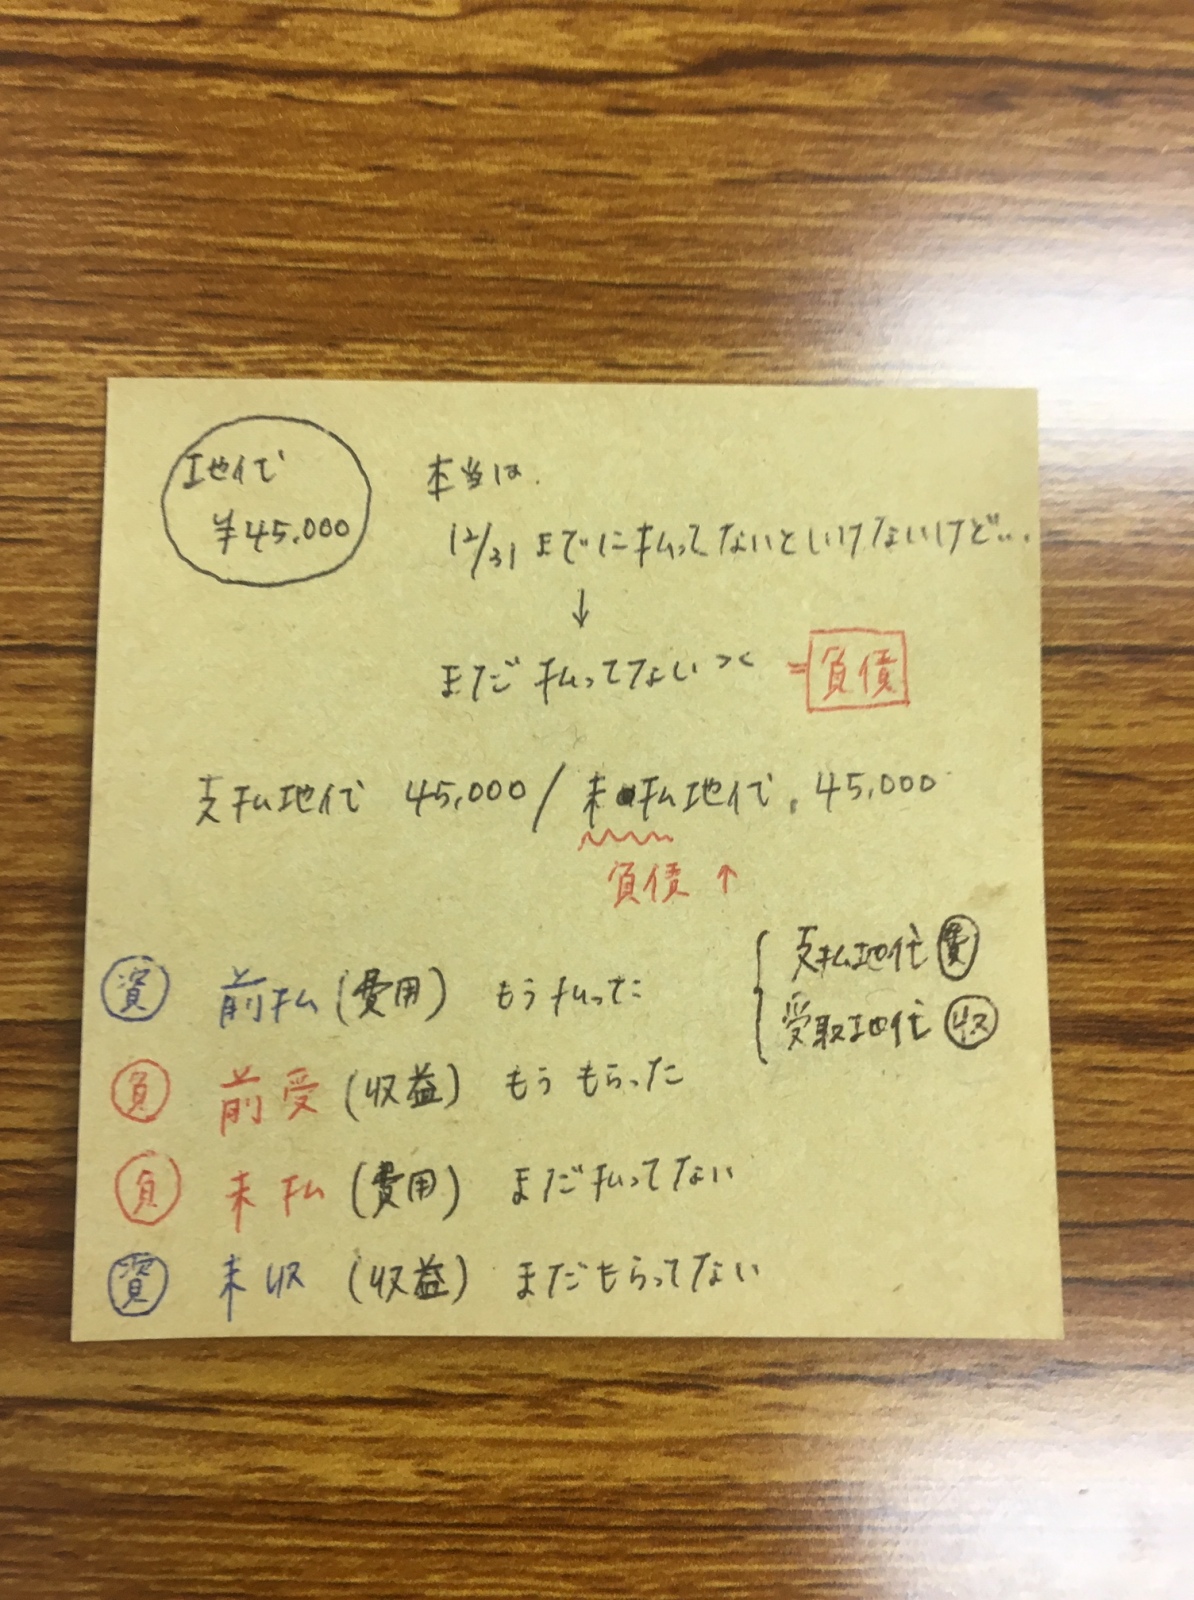 地代
¥45,000
本当は.
12/31 までに払ってないといけないけど...
↓
まだ払ってない ><
=負債
支払地代 45,000 / 未払地代. 45,000
負債 ↑
支払地代 費
受取地代 収
資 前払 (費用) もう払った
負 前受 (収益) もうもらった
負 未払 (費用) まだ払ってない
資 未収 (収益) まだもらってない